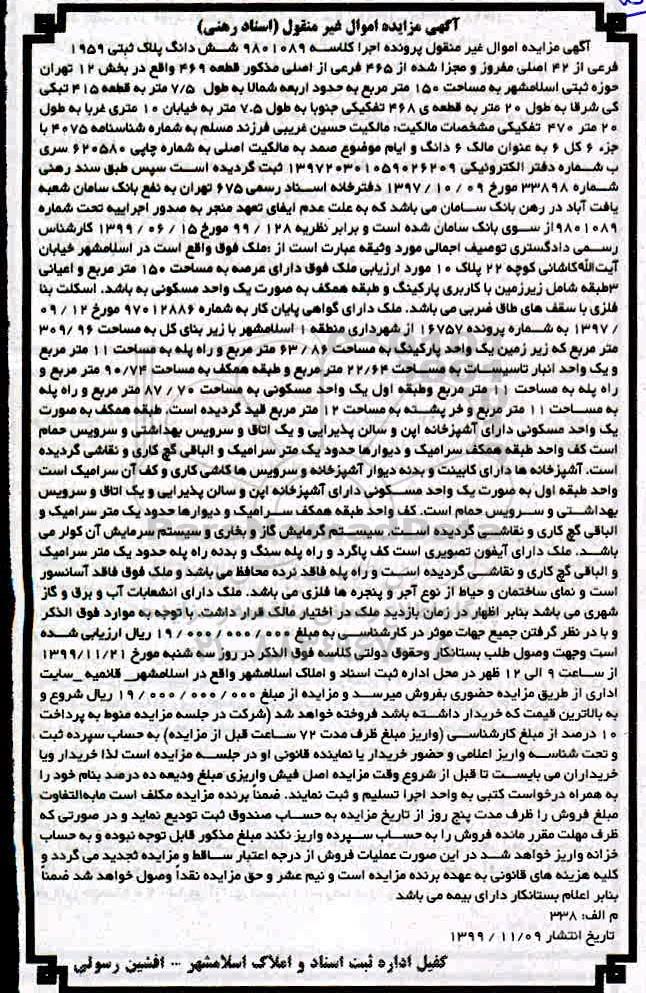 آگهی مزایده اموال غیر منقول (اسناد رهنی)
آگهی مزایده اموال غیر منقول پرونده اجرا کلاسه ۹۸۰۱۰۸۹ شش دانگ پلاک ثبتی ۱۹۵۹
فرعی از ۴۲ اصلی مفروز و مجزا شده از ۴۶۵ فرعی از اصلی مذکور قطعه ۴۶۹ واقع در بخش ۱۲ تهران
حوزه ثبتی اسلامشهر به مساحت ۱۵۰ متر مربع به حدود اربعه شمالا به طول ۷/۵ متر به قطعه ۴۱۵ تبکی
کی شرقا به طول ۲۰ متر به قطعه ی ۴۶۸ تفکیکی جنوبا به طول ۷.۵ متر به خیابان ۱۰ متری غربا به طول
۲۰ متر ۴۷۰ تفکیکی مشخصات مالکیت: مالکیت حسین غریبی فرزند مسلم به شماره شناسنامه ۴۰۷۵ با
جزء ۶ کل ۶ به عنوان مالک ۶ دانگ و ایام موضوع صمد به مالکیت اصلی به شماره چاپی ۶۲۰۵۸۰ سری
ب شماره دفتر الکترونیکی ۱۳۹۷۲۰۳۰۱۰۵۹۰۲۶۲۰۹ ثبت گردیده است سپس طبق سند رهنی
شماره ۳۳۸۹۸ مورخ ۰۹ / ۱۰ / ۱۳۹۷ دفترخانه اسناد رسمی ۶۷۵ تهران به نفع بانک سامان شعبه
یافت آباد در رهن بانک سامان می باشد که به علت عدم ایفای تعهد منجر به صدور اجراییه تحت شماره
۹۸۰۱۰۸۹از سوی بانک سامان شده است و برابر نظریه ۱۲۸ / ۹۹ مورخ ۱۵ / ۰۶ / ۱۳۹۹ کارشناس
رسمی دادگستری توصیف اجمالی مورد وثیقه عبارت است از :ملک فوق واقع است در اسلامشهر خیابان
آیت‌الله‌کاشانی کوچه ۲۲ پلاک ۱۰ مورد ارزیابی ملک فوق دارای عرصه به مساحت ۱۵۰ متر مربع و اعیانی
۳طبقه شامل زیرزمین با کاربری پارکینگ و طبقه همکف به صورت یک واحد مسکونی به باشد. اسکلت بنا
فلزی با سقف های طاق ضربی می باشد. ملک دارای گواهی پایان کار به شماره ۹۷۰۱۲۸۸۶ مورخ ۱۲ / ۰۹
/ ۱۳۹۷ به شماره پرونده ۱۶۷۵۷ از شهرداری منطقه ۱ اسلامشهر با زیر بنای کل به مساحت ۹۶ /۳۰۹
متر مربع که زیر زمین یک واحد پارکینگ به مساحت ۸۶ / ۶۳ متر مربع و راه پله به مساحت ۱۱ متر مربع
و یک واحد انبار تاسیسات به مساحت ۲۲/۶۴ متر مربع و طبقه همکف به مساحت ۹۰/۷۴ متر مربع و
راه پله به مساحت ۱۱ متر مربع وطبقه اول یک واحد مسکونی به مساحت ۷۰ / ۸۷ متر مربع و راه پله
به مساحت ۱۱ متر مربع و خر پشته به مساحت ۱۲ متر مربع قید گردیده است. طبقه همکف به صورت
یک واحد مسکونی دارای آشپزخانه اپن و سالن پذیرایی و یک اتاق و سرویس بهداشتی و سرویس حمام
است کف واحد طبقه همکف سرامیک و دیوارها حدود یک متر سرامیک و الباقی گچ کاری و نقاشی گردیده
است. آشپزخانه ها دارای کابینت و بدنه دیوار آشپزخانه و سرویس ها کاشی کاری و کف آن سرامیک است
واحد طبقه اول به صورت یک واحد مسکونی دارای آشپزخانه اپن و سالن پذیرایی و یک اتاق و سرویس
بهداشتی و سرویس حمام است. کف واحد طبقه همکف سرامیک و دیوارها حدود یک متر سرامیک و
الباقی گچ کاری و نقاشی گردیده است. سیستم گرمایش گاز و بخاری و سیستم سرمایش آن کولر می
باشد. ملک دارای آیفون تصویری است کف پاگرد و راه پله سنگ و بدنه راه پله حدود یک متر سرامیک
و الباقی گچ کاری و نقاشی گردیده است و راه پله فاقد نرده محافظ می باشد و ملک فوق فاقد آسانسور
است و نمای ساختمان و حیاط از نوع آجر و پنجره ها فلزی می باشد. ملک دارای انشعابات آب و برق و گاز
شهری می باشد بنابر اظهار در زمان بازدید ملک در اختیار مالک قرار داشت. با توجه به موارد فوق الذکر
و با در نظر گرفتن جمیع جهات موثر در کارشناسی به مبلغ ۰۰۰ / ۰۰۰ / ۰۰۰ / ۱۹ ریال ارزیابی شده
است وجهت وصول طلب بستانکار وحقوق دولتی کلاسه فوق الذکر در روز سه شنبه مورخ ۱۳۹۹/۱۱/۲۱
از ساعت ۹ الی ۱۲ ظهر در محل اداره ثبت اسناد و املاک اسلامشهر واقع در اسلامشهر_ قائمیه _سایت
اداری از طریق مزایده حضوری بفروش میرسد و مزایده از مبلغ ۰۰۰ / ۰۰۰ / ۰۰۰ / ۱۹ ریال شروع و
به بالاترین قیمت که خریدار داشته باشد فروخته خواهد شد (شرکت در جلسه مزایده منوط به پرداخت
۱۰ درصد از مبلغ کارشناسی (واریز مبلغ ظرف مدت ۷۲ ساعت قبل از مزایده) به حساب سپرده ثبت
و تحت شناسه واریز اعلامی و حضور خریدار یا نماینده قانونی او در جلسه مزایده است لذا خریدار ویا
خریداران می بایست تا قبل از شروع وقت مزایده اصل فیش واریزی مبلغ ودیعه ده درصد بنام خود را
به همراه درخواست کتبی به واحد اجرا تسلیم و ثبت نمایند. ضمناً برنده مزایده مکلف است مابه‌التفاوت
مبلغ فروش را ظرف مدت پنج روز از تاریخ مزایده به حساب صندوق ثبت تودیع نماید و در صورتی که
ظرف مهلت مقرر مانده فروش را به حساب سپرده واریز نکند مبلغ مذکور قابل توجه نبوده و به حساب
خزانه واریز خواهد شد در این صورت عملیات فروش از درجه اعتبار ساقط و مزایده تجدید می گردد و
کلیه هزینه های قانونی به عهده برنده مزایده است و نیم عشر و حق مزایده نقداً وصول خواهد شد ضمناً
بنابر اعلام بستانکار دارای بیمه می باشد
م الف: ۳۳۸
تاریخ انتشار ۱۱/۰۹ / ۱۳۹۹
کفیل اداره ثبت اسناد و املاک اسلامشهر -- افشین رسولی